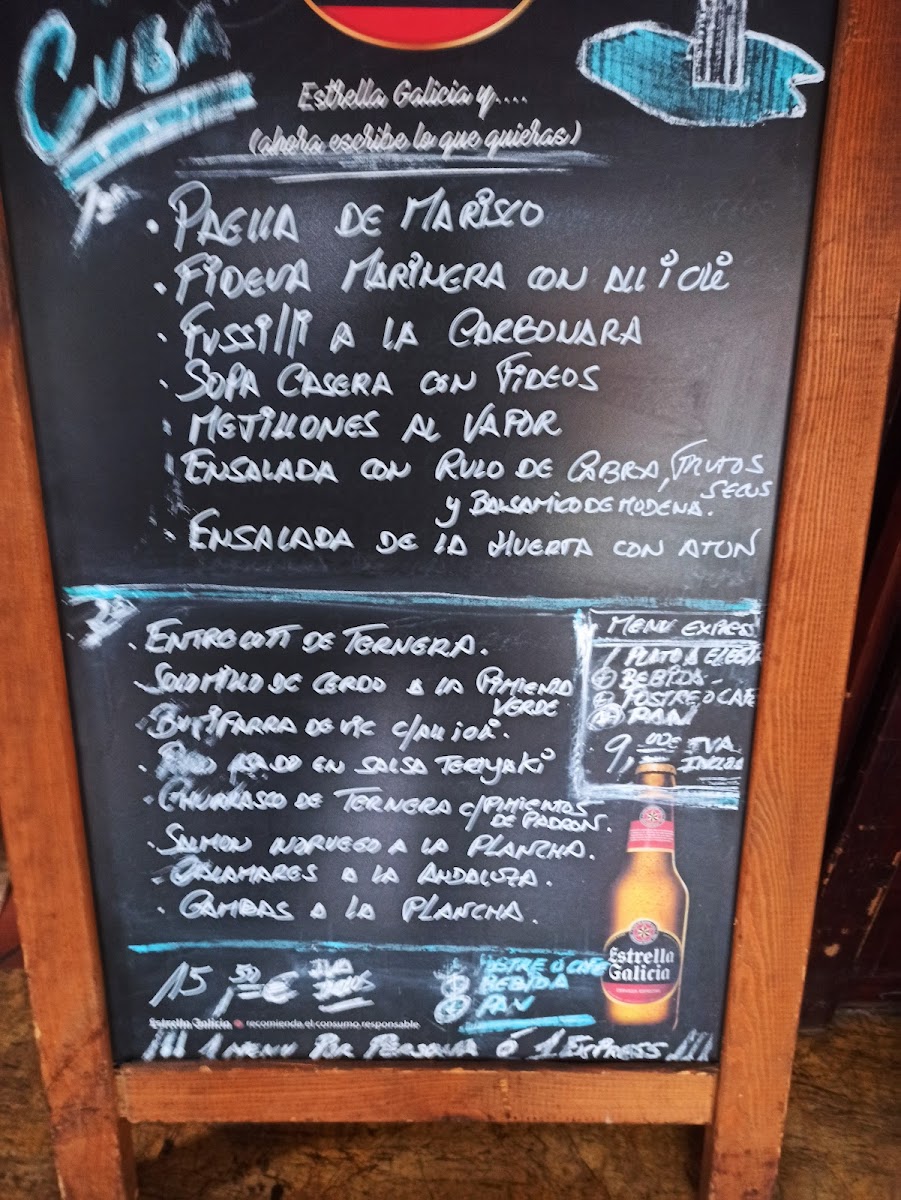 CUBA
Estrella Galicia y....
(ahora escribe lo que quieras)
· PAELLA DE MARISCO
· FIDEUA MARINERA CON ALLIOLI
· FUSSILLI A LA CARBONARA
· SOPA CASERA CON FIDEOS
· MEJILLONES AL VAPOR
· ENSALADA CON RULO DE CABRA, FRUTOS SECOS
y BALSAMICO DE MODENA.
· ENSALADA DE LA HUERTA CON ATUN
· ENTRECOTT DE TERNERA.
· SOLOMILLO DE CERDO A LA PIMIENTA VERDE
· BUTIFARRA DE VIC C/ALLIOLI.
· EN SALSA TERIYAKI
· CHURRASCO DE TERNERA C/PIMIENTOS DE PADRON.
· SALMON NORUEGO A LA PLANCHA.
· CALAMARES A LA ANDALUZA.
· GAMBAS A LA PLANCHA.
MENU EXPRES
1 PLATO A ELEGIR
+ BEBIDA
+ POSTRE O CAFE
+ PAN
9,00€ IVA
INCLUIDO
15,50€ IVA
+ POSTRE O CAFE
+ BEBIDA
+ PAN
Estrella
Galicia
CERVEZA ESPECIAL
Estrella Galicia recomienda el consumo responsable
¡¡¡ 1 MENU POR PERSONA Ó 1 EXPRESS !!!